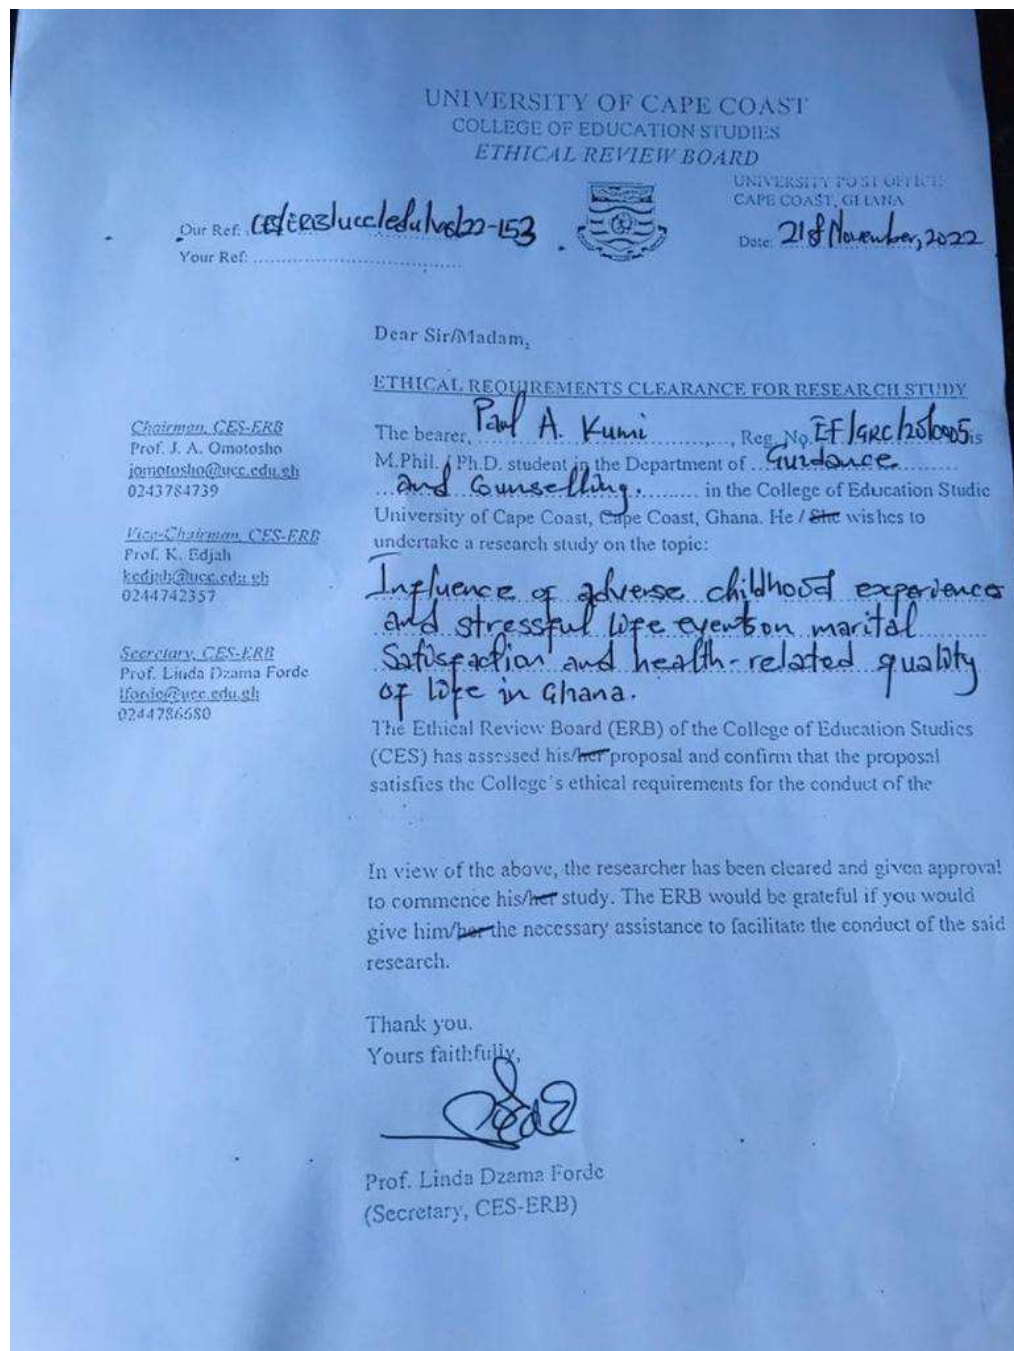 UNIVERSITY OF CAPE COAST
COLLEGE OF EDUCATION STUDIES
ETHICAL REVIEW BOARD
UNIVERSITY POST OFFICE
CAPE COAST, GHANA
Our Ref: CES/ERB/ucc/edu/v6/22-153
Date: 21st November, 2022
Your Ref:
Dear Sir/Madam,
ETHICAL REQUIREMENTS CLEARANCE FOR RESEARCH STUDY
Chairman, CES-ERB
Prof. J. A. Omotosho
jomotosho@ucc.edu.gh
0243784739
Vice-Chairman, CES-ERB
Prof. K. Edjah
kedjah@ucc.edu.gh
0244742357
Secretary, CES-ERB
Prof. Linda Dzama Forde
lforde@ucc.edu.gh
0244786680
The bearer, Paul A. Kumi, Reg. No. is
M.Phil. / Ph.D. student in the Department of Guidance
and Counselling. in the College of Education Studie
University of Cape Coast, Cape Coast, Ghana. He / She wishes to
undertake a research study on the topic:
Influence of adverse childhood experiences
and stressful life event on marital
Satisfaction and health-related quality
of life in Ghana.
The Ethical Review Board (ERB) of the College of Education Studies
(CES) has assessed his/her proposal and confirm that the proposal
satisfies the College's ethical requirements for the conduct of the
In view of the above, the researcher has been cleared and given approval
to commence his/her study. The ERB would be grateful if you would
give him/her the necessary assistance to facilitate the conduct of the said
research.
Thank you.
Yours faithfully,
Prof. Linda Dzama Forde
(Secretary, CES-ERB)